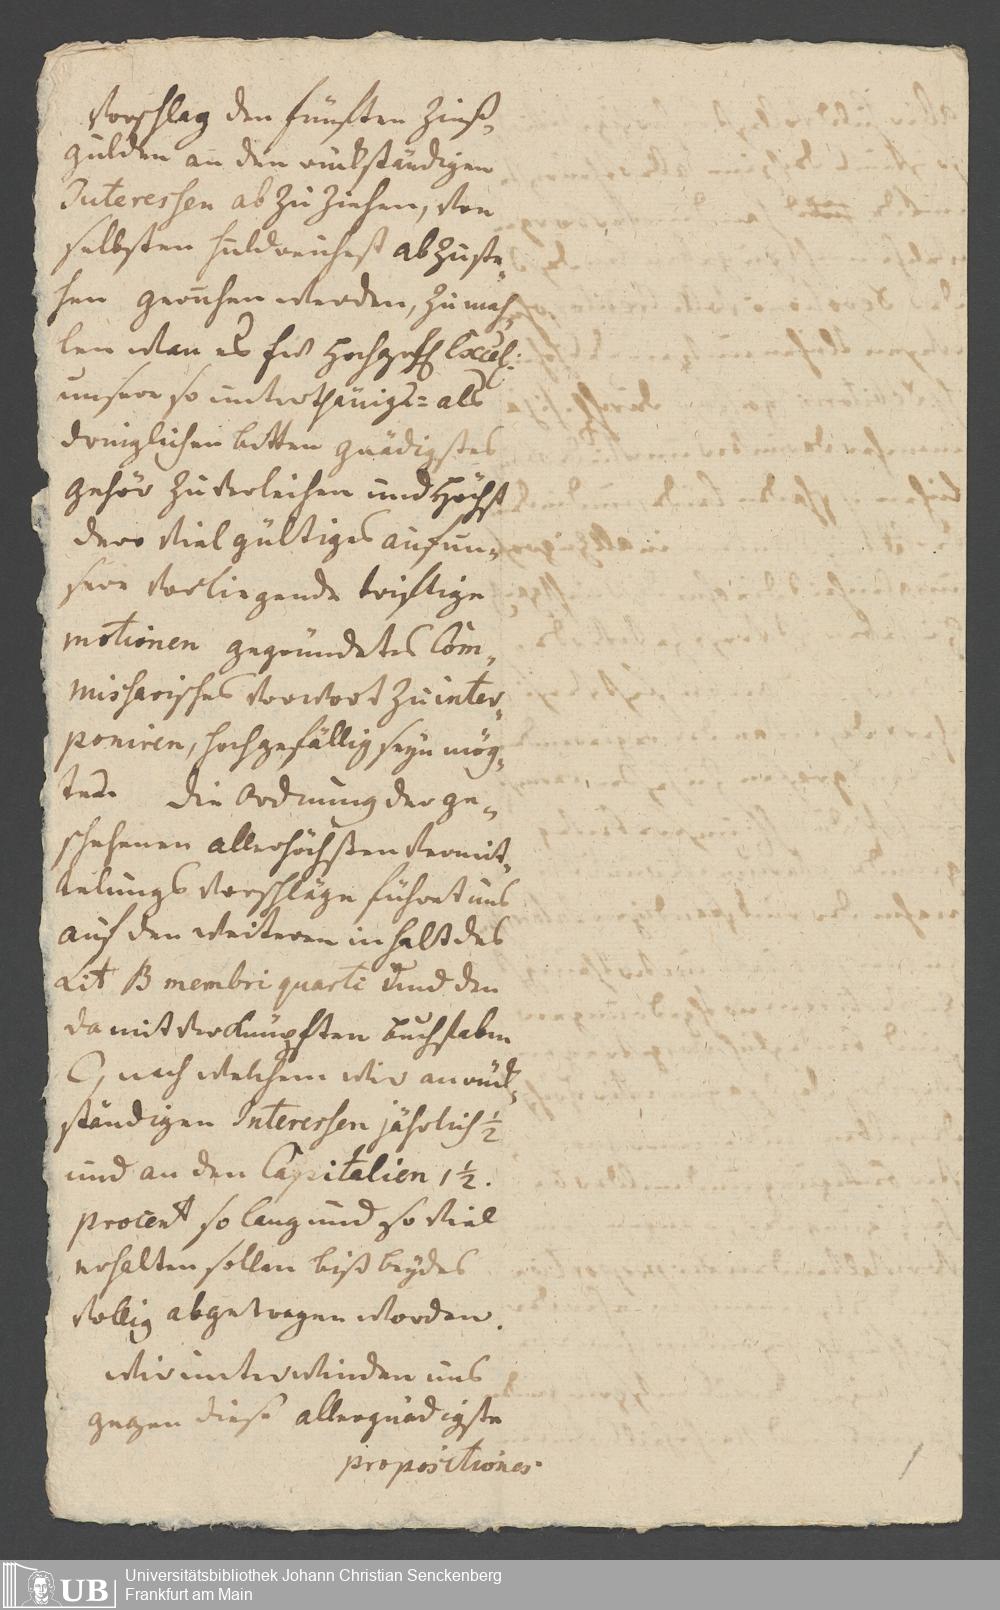 Vorschlag den fünften Zinß-
gulden an den rückständigen
Interessen abzuziehen, von
selbsten huldreichest abzuste-
hen geruhen werden, zumah-
len wan es Ew Hochgräfl Excel:
unsere so unterthänigs= als
dringlichen bitten gnädigstes
gehör zu verleihen und Höchst
dero Viel gültiges auf un-
sere vorliegende triftige
motionen gegründetes Com-
missarisches Vorwort zu inter-
poniren, hochgefällig seyn mög-
te. Die Ordnung der ge-
schehenen allerhöchsten Vermit-
telungs Vorschläge führet uns
auf den weiteren inhalt des
Lit B membri quarti und den
damit verknüpften buchstaben
C, nach welchem wir an rück-
ständigen Interessen jährlich ½
und an den Capitalien 1 ½.
procent so lang und so viel
erhalten sollen biß beydes
völlig abgetragen worden.
Wir unterwinden uns
gegen diese allergnädigste
propositiones
Universitätsbibliothek Johann Christian Senckenberg
Frankfurt am Main
UB